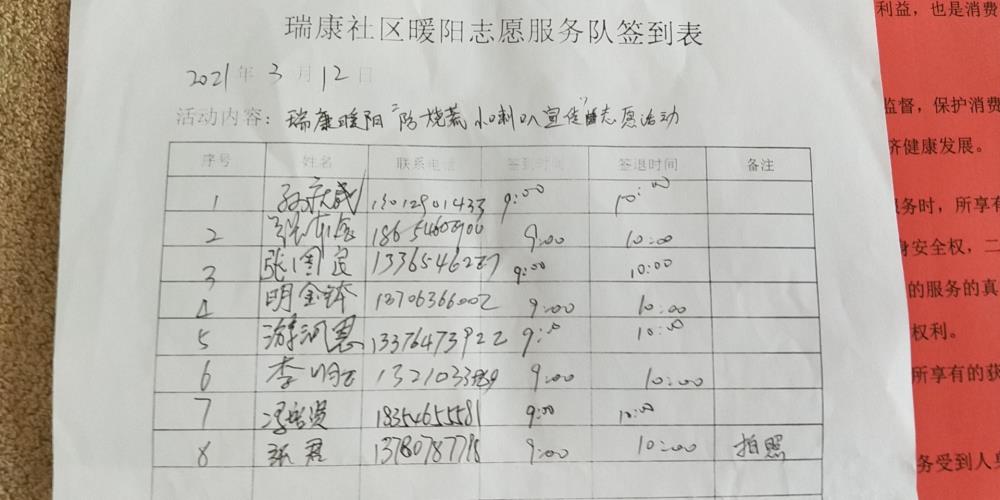 瑞康社区暖阳志愿服务队签到表
2021年3月12日
活动内容：瑞康暖阳"防烧荒小喇叭宣传"志愿活动
序号 姓名 联系电话 签到时间 签退时间 备注
1 9:00 10:00
2 9:00 10:00
3 张国良 9:00 10:00
4 明金钵 13706366002 9:00 10:00
5 13376473922 9:00 10:00
6 李 9:00 10:00
7 18354655581 9:00 10:00
8 张君 13780787798 9:00 10:00 拍照
利益，也是消费
监督，保护消费
济健康发展。
服务时，所享有
身安全权，二
的服务的真
权利。
所享有的获
务受到人身